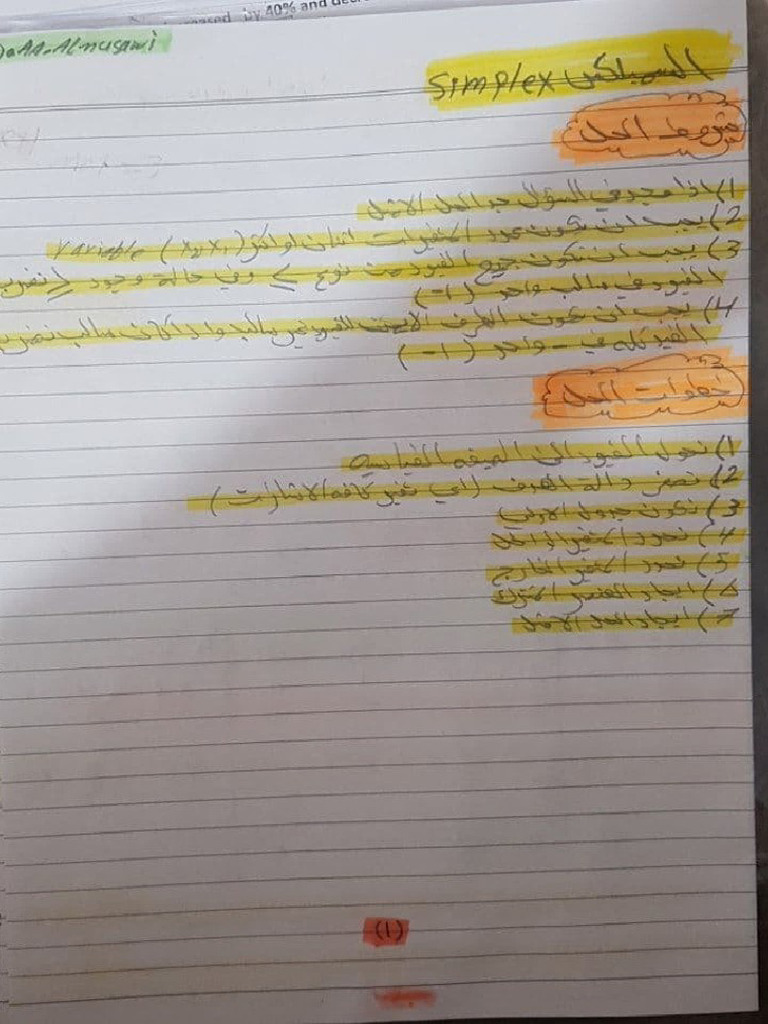 by 40% and
AA-Almusawi
السمبلكس Simplex
شروط الحل
1) اذا وجد في السؤال جد الحل الامثل
2) يجب ان تكون عدد المتغيرات اثنان او اكثر (X₂ X₁) Variable
3) يجب ان تكون جميع القيود من نوع ≤ وفي حالة وجود ≥ نضرب
القيود في سالب واحد (1-)
4) يجب ان يكون الطرف الايمن للقيود غير سالب واذا كان سالب نضرب
القيد كله في - واحد (1-)
خطوات الحل
1) نحول القيود الى الصيغه القياسيه
2) نصفر دالة الهدف (اي تغير كافه الاشارات)
3) نكون جدول الاولي
4) نحدد المتغير الداخل
5) نحدد المتغير الخارج
6) ايجاد العنصر المشترك
7) ايجاد الحل الامثل
(1)